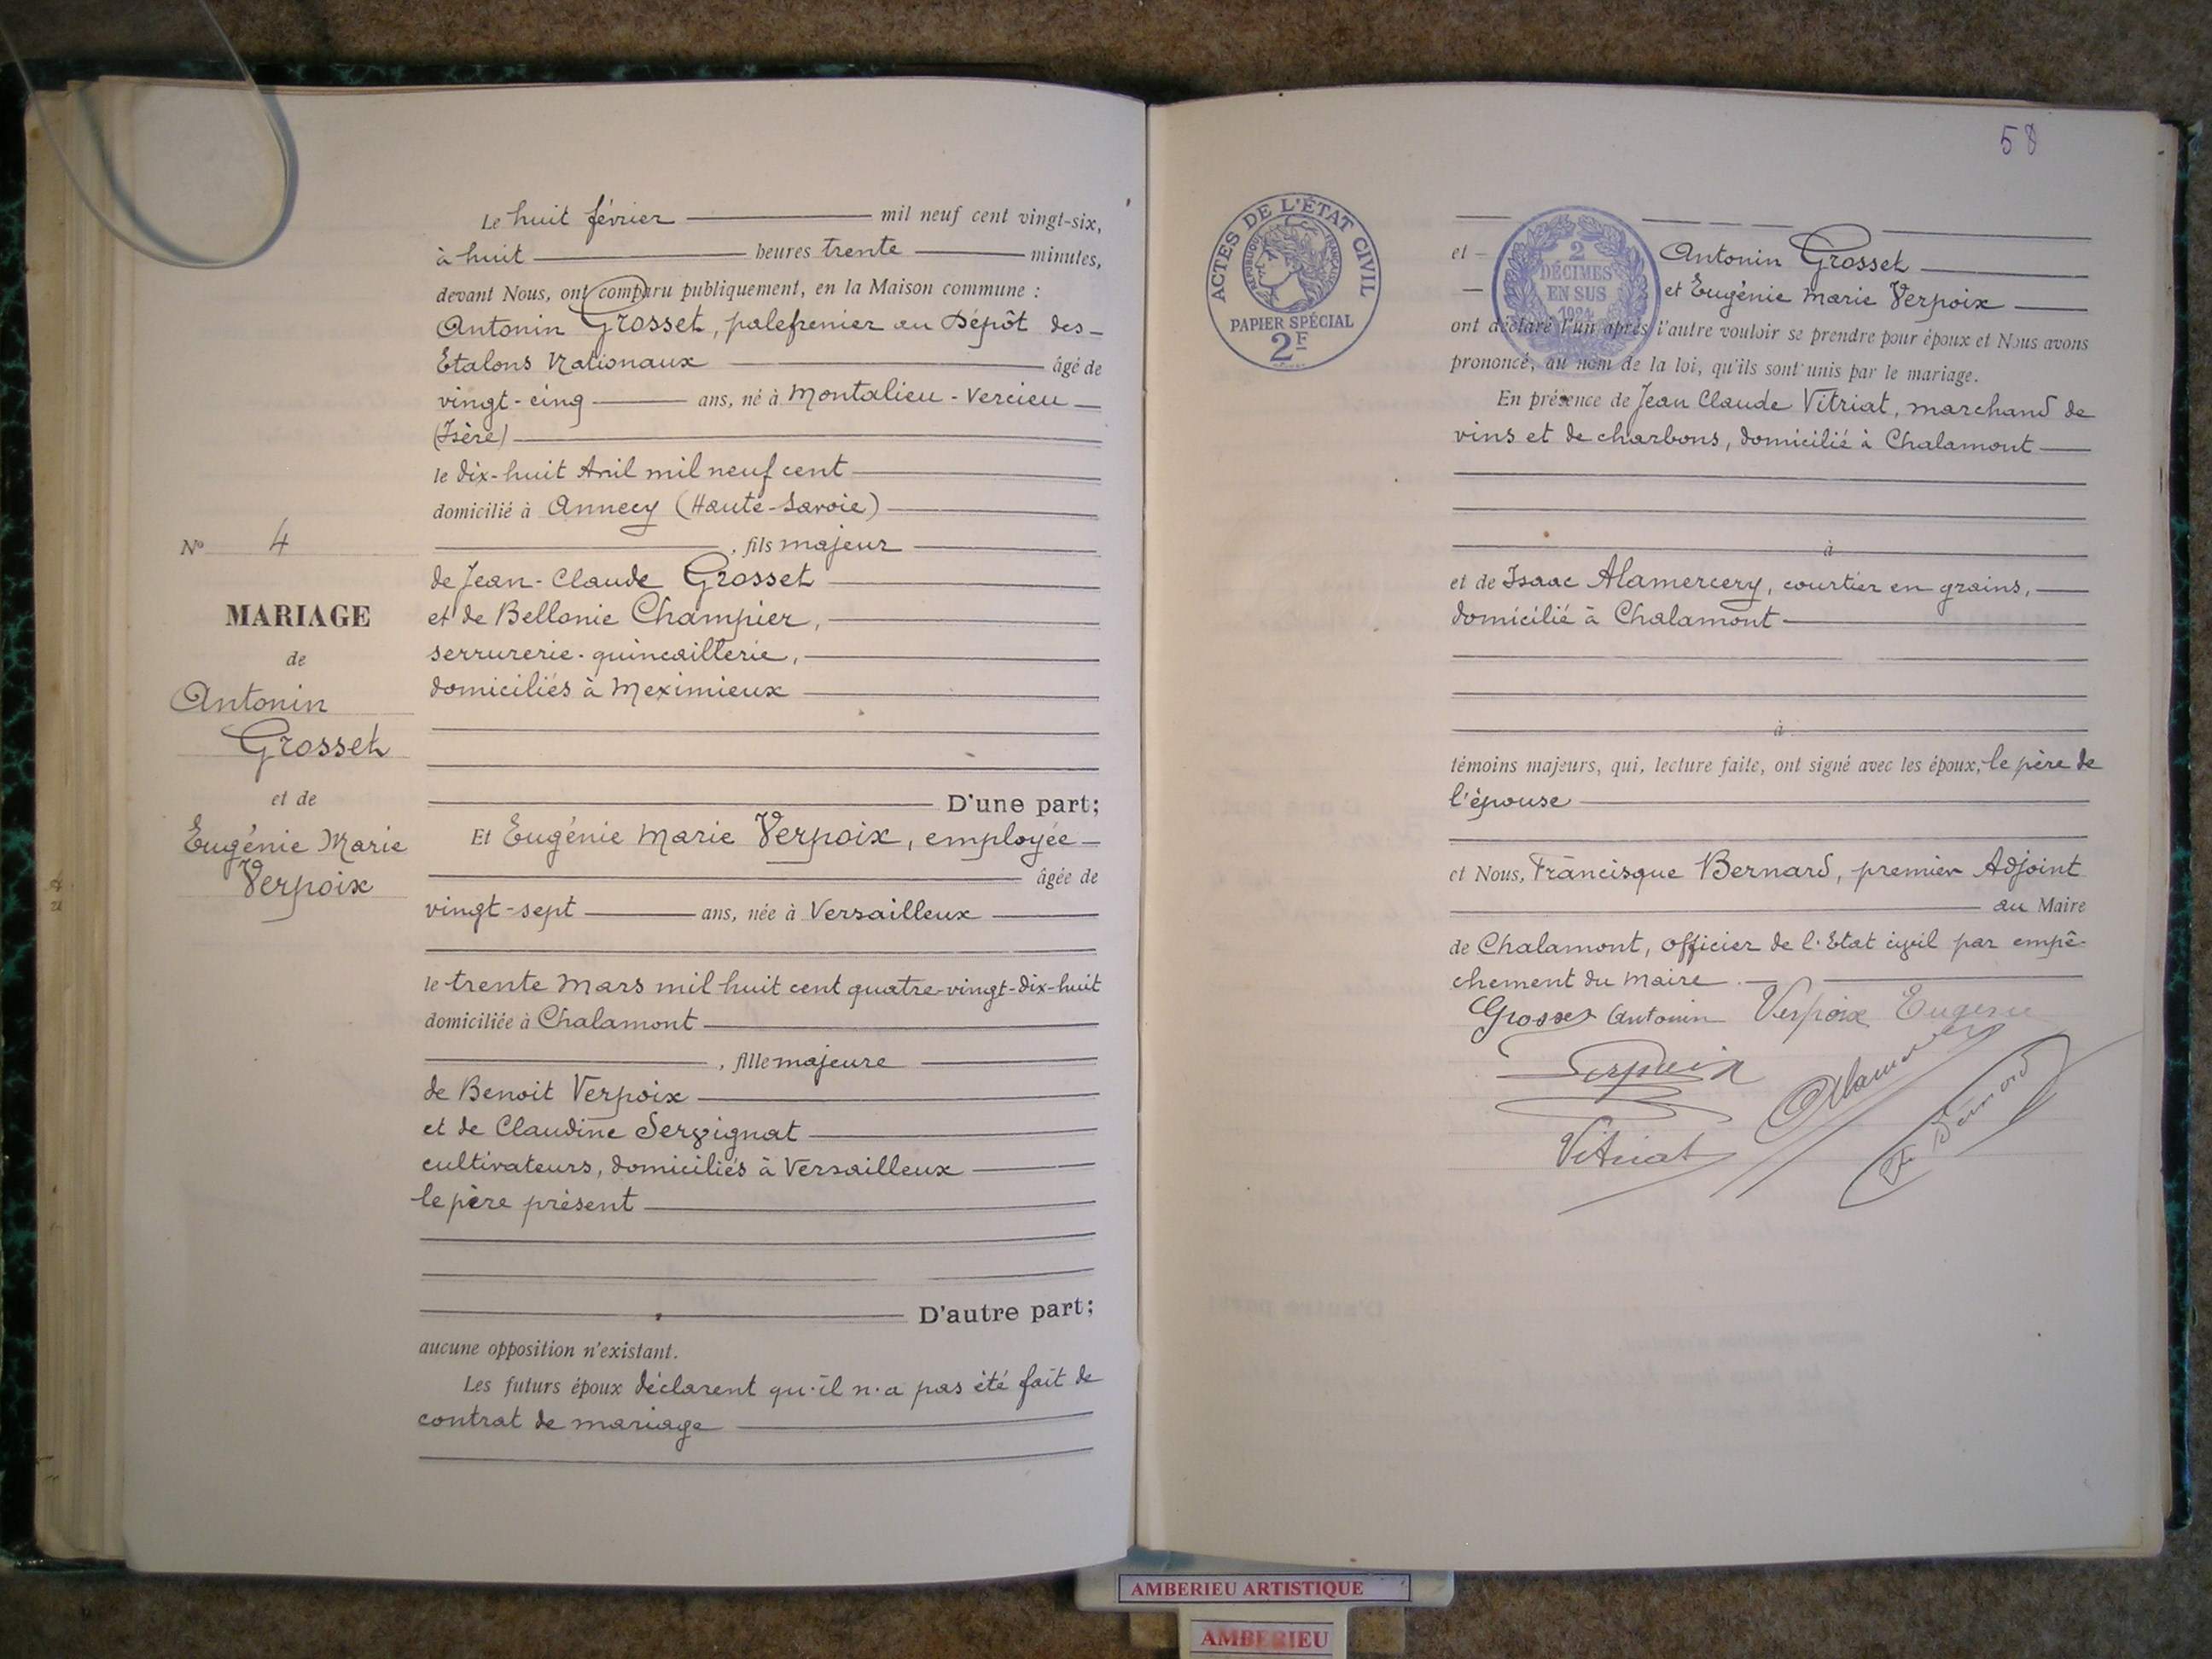 Le huit février mil neuf cent vingt-six,
à huit heures trente minutes,
devant Nous, ont comparu publiquement, en la Maison commune :
Antonin Grosset, palefrenier au Dépôt des
Etalons Nationaux âgé de
vingt-cinq ans, né à Montalieu-Vercieu
(Isère)
le dix-huit Avril mil neuf cent
domicilié à Annecy (Haute-Savoie)
, fils majeur
de Jean-Claude Grosset
et de Bellonie Champier,
serrurerie-quincaillerie,
domiciliés à Meximieux
D'une part;
Et Eugénie Marie Verpoix, employée
âgée de
vingt-sept ans, née à Versailleux
le trente Mars mil huit cent quatre-vingt-dix-huit
domiciliée à Chalamont
, fille majeure
de Benoit Verpoix
et de Claudine Servignat
cultivateurs, domiciliés à Versailleux
le père présent
D'autre part;
aucune opposition n'existant.
Les futurs époux déclarent qu'il n'a pas été fait de
contrat de mariage
N° 4
MARIAGE
de
Antonin
Grosset
et de
Eugénie Marie
Verpoix
58
ACTES DE L'ÉTAT CIVIL
RÉPUBLIQUE FRANÇAISE
PAPIER SPÉCIAL
2F
2
DÉCIMES
EN SUS
1924
et Antonin Grosset
et Eugénie Marie Verpoix
ont déclaré l'un après l'autre vouloir se prendre pour époux et Nous avons
prononcé, au nom de la loi, qu'ils sont unis par le mariage.
En présence de Jean Claude Vitriat, marchand de
vins et de charbons, domicilié à Chalamont
à
et de Isaac Alamercery, courtier en grains,
domicilié à Chalamont
à
témoins majeurs, qui, lecture faite, ont signé avec les époux, le père de
l'épouse
et Nous, Francisque Bernard, premier Adjoint
au Maire
de Chalamont, officier de l'Etat civil par empê-
chement du Maire.
Grosset Antonin Verpoix Eugenie
Verpoix
Alamercery
Vitriat
Fr Bernard
AMBERIEU ARTISTIQUE
AMBERIEU